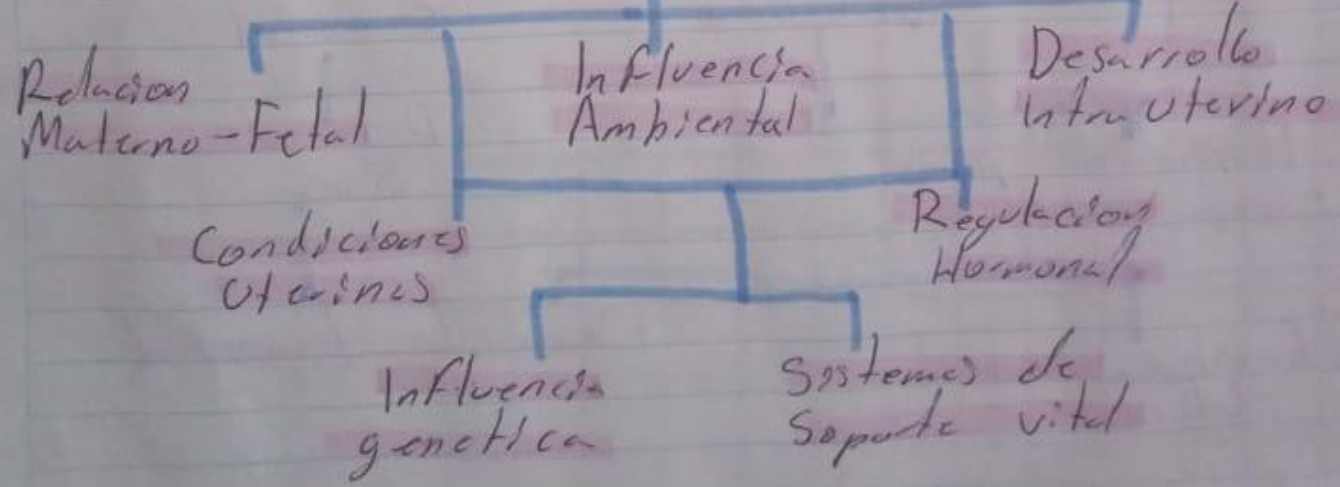 Relacion
Materno-Fetal
Influencia
Ambiental
Desarrollo
Intrauterino
Condiciones
Uterines
Regulacion
Hormonal
Influencia
genetica
Sistemas de
Soporte vital